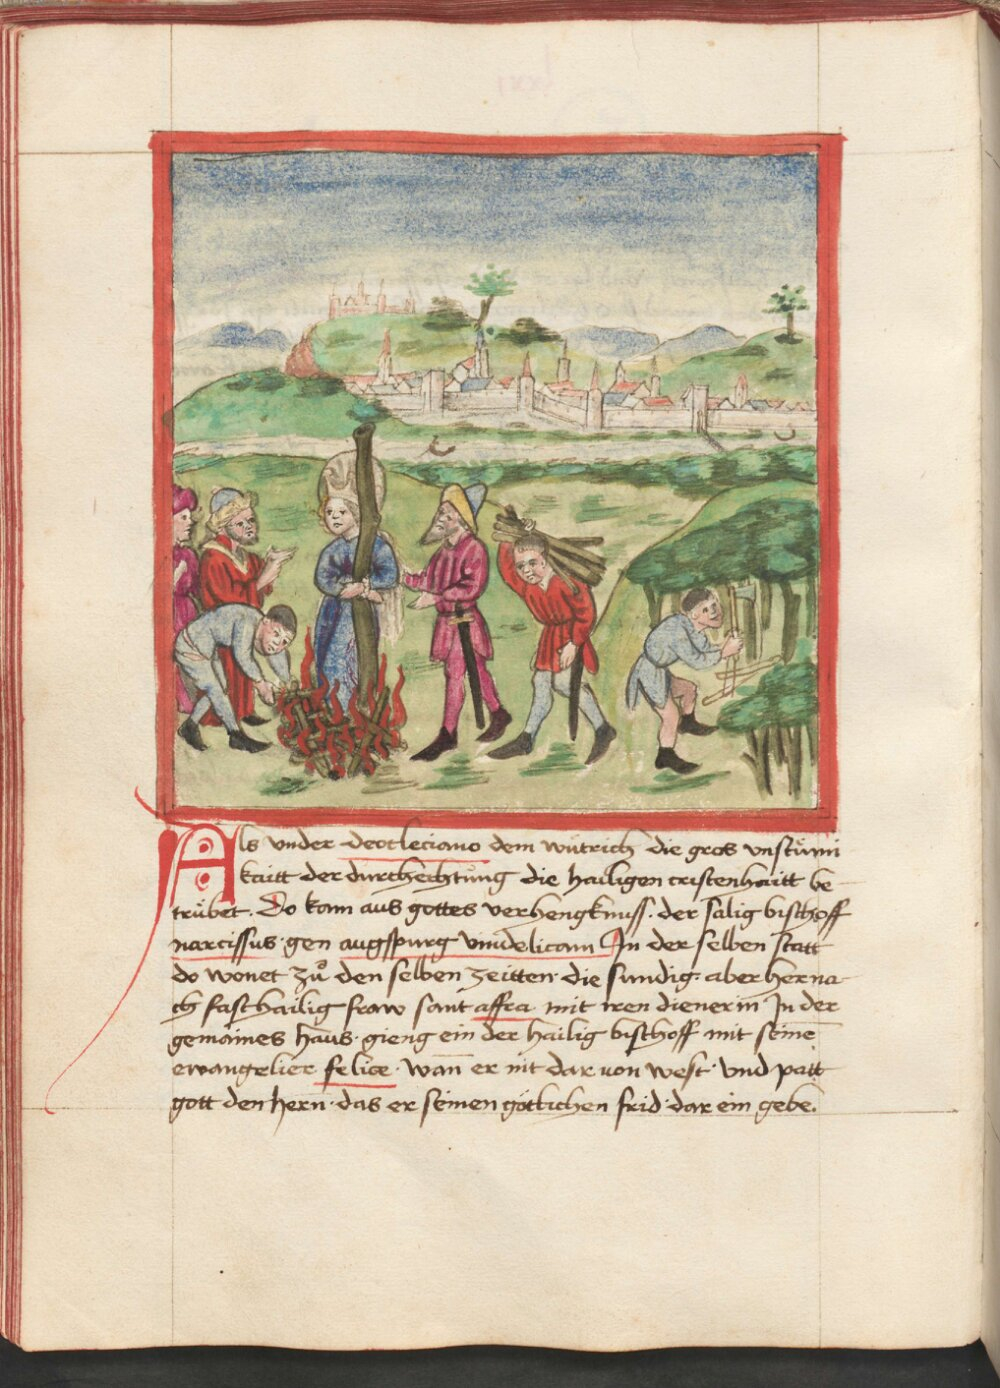 Als vnder deocleciano dem wütrich die gros vnstümi
kaitt der durchechtung die hailigen cristenhaitt be-
trübet. Do kam aus gottes verhengknuss. der sälig bischoff
narcissus. gen augspurg vindelicam In der selben statt
do wonet zů den selben zeitten. die sundig. aber herna-
ch fast hailig fraw sant affra mit iren dienerin In der
gemaines haus. gieng ein der hailig bischoff mit seinē
ewangelier felice. wan̄ er nit dar von west. vnd patt
gott den hern̄. das er seinen götlichen frid. dar ein gebe.